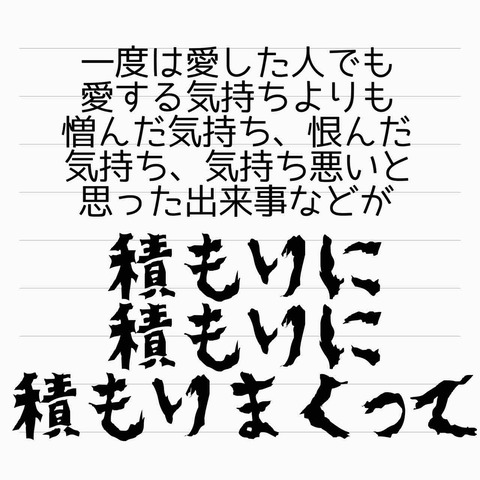 一度は愛した人でも
愛する気持ちよりも
憎んだ気持ち、恨んだ
気持ち、気持ち悪いと
思った出来事などが
積もりに
積もりに
積もりまくって